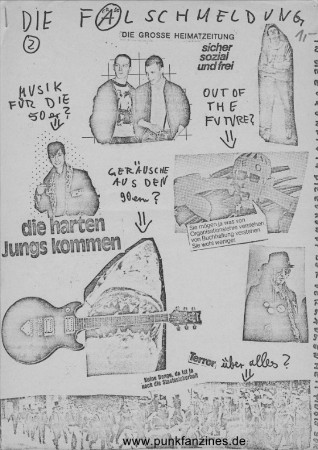 DIE FALSCHMELDUNG
②
DIE GROSSE HEIMATZEITUNG
sicher
sozial
und frei
MUSIK
FÜR DIE
50er?
OUT OF
THE
FUTURE?
GERÄUSCHE
AUS DEN
90ern?
die harten
Jungs kommen
Sie mögen ja was von
Organisationslehre verstehen
von Buchhaltung verstehen
Sie wohl weniger.
Terror, über alles?
Keine Bange, da ist ja
noch die Staatssicherheit
www.punkfanzines.de